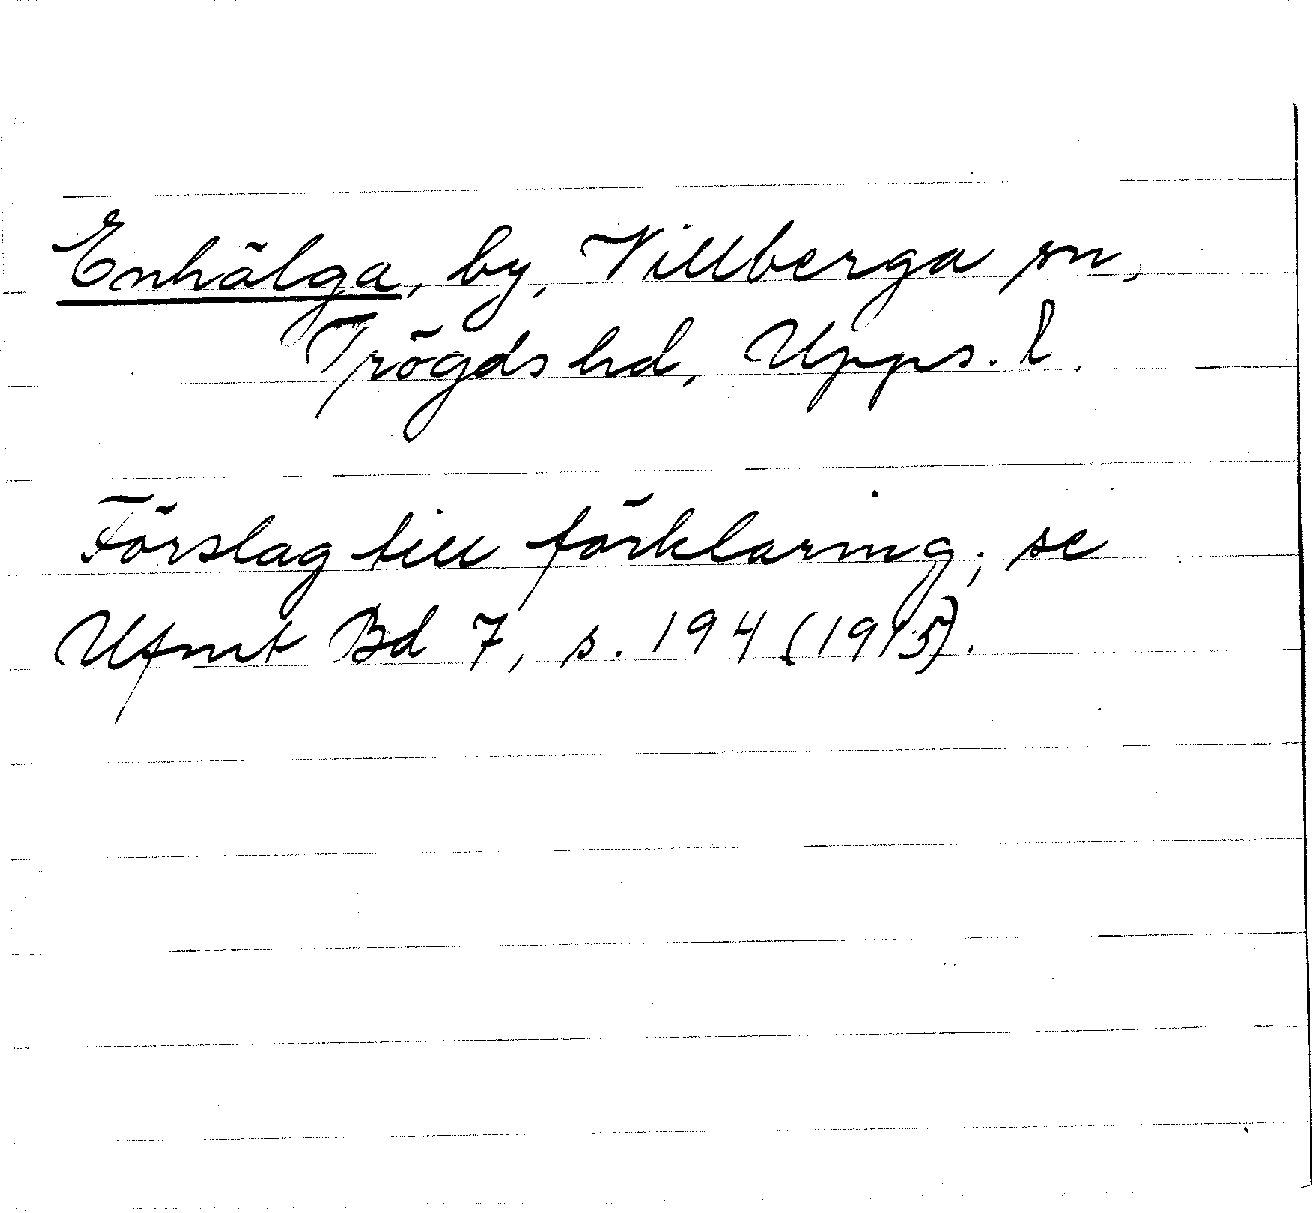 Enhälga, by, Villberga sn,
Trögds hd, Upps. l.
Förslag till förklaring, se
Ufmt Bd 7, s. 194 (1915).